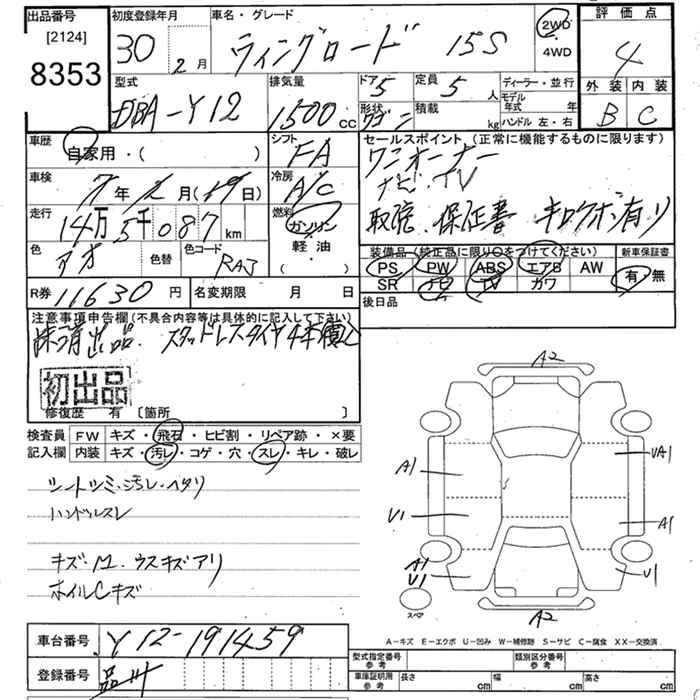 出品番号
[2124]
8353
初度登録年月
30 2月
車名・グレード
ウィングロード 15S
2WD
4WD
評価点
4
外装 内装
B C
型式
DBA-Y12
排気量
1500cc
ドア 5
形状 ワゴン
定員 5人
積載 kg
ディーラー・並行
モデル年式 年
ハンドル 左・右
車歴
自家用・( )
シフト
FA
セールスポイント (正常に機能するものに限ります)
ワンオーナー
ナビ・TV
取説・保証書 キロクボ有り
車検
7年2月(19日)
冷房
A/C
走行
14万5千087km
燃料
ガソリン
軽・油
( )
色
アオ
色替
色コード
RAJ
装備品 (純正品に限り○をつけてください)
PS PW ABS エアB AW
SR ナビ TV カワ
新車保証書
有・無
R券 11630円
名変期限 月 日
後日品
注意事項申告欄(不具合内容等は具体的に記入して下さい)
抹消出品. スタッドレスタイヤ4本積込
初出品
修復歴 有 [箇所 ]
検査員 FW キズ・飛石・ヒビ割・リペア跡・×要
記入欄 内装 キズ・汚レ・コゲ・穴・スレ・キレ・破レ
シートシミ・汚レ・ヘタリ
ハンドルスレ
キズ・M. ウスキズアリ
ホイルCキズ
A2
A1
UA1
U1
A1
A1
U1
U1
スペア
A2
A-キズ E-エクボ U-凹み W-補修跡 S-サビ C-腐食 XX-交換済
車台番号 Y12-191459
登録番号 品川
型式指定番号 参考
類別区分番号 参考
車庫証明用 参考
長さ cm 幅 cm 高さ cm